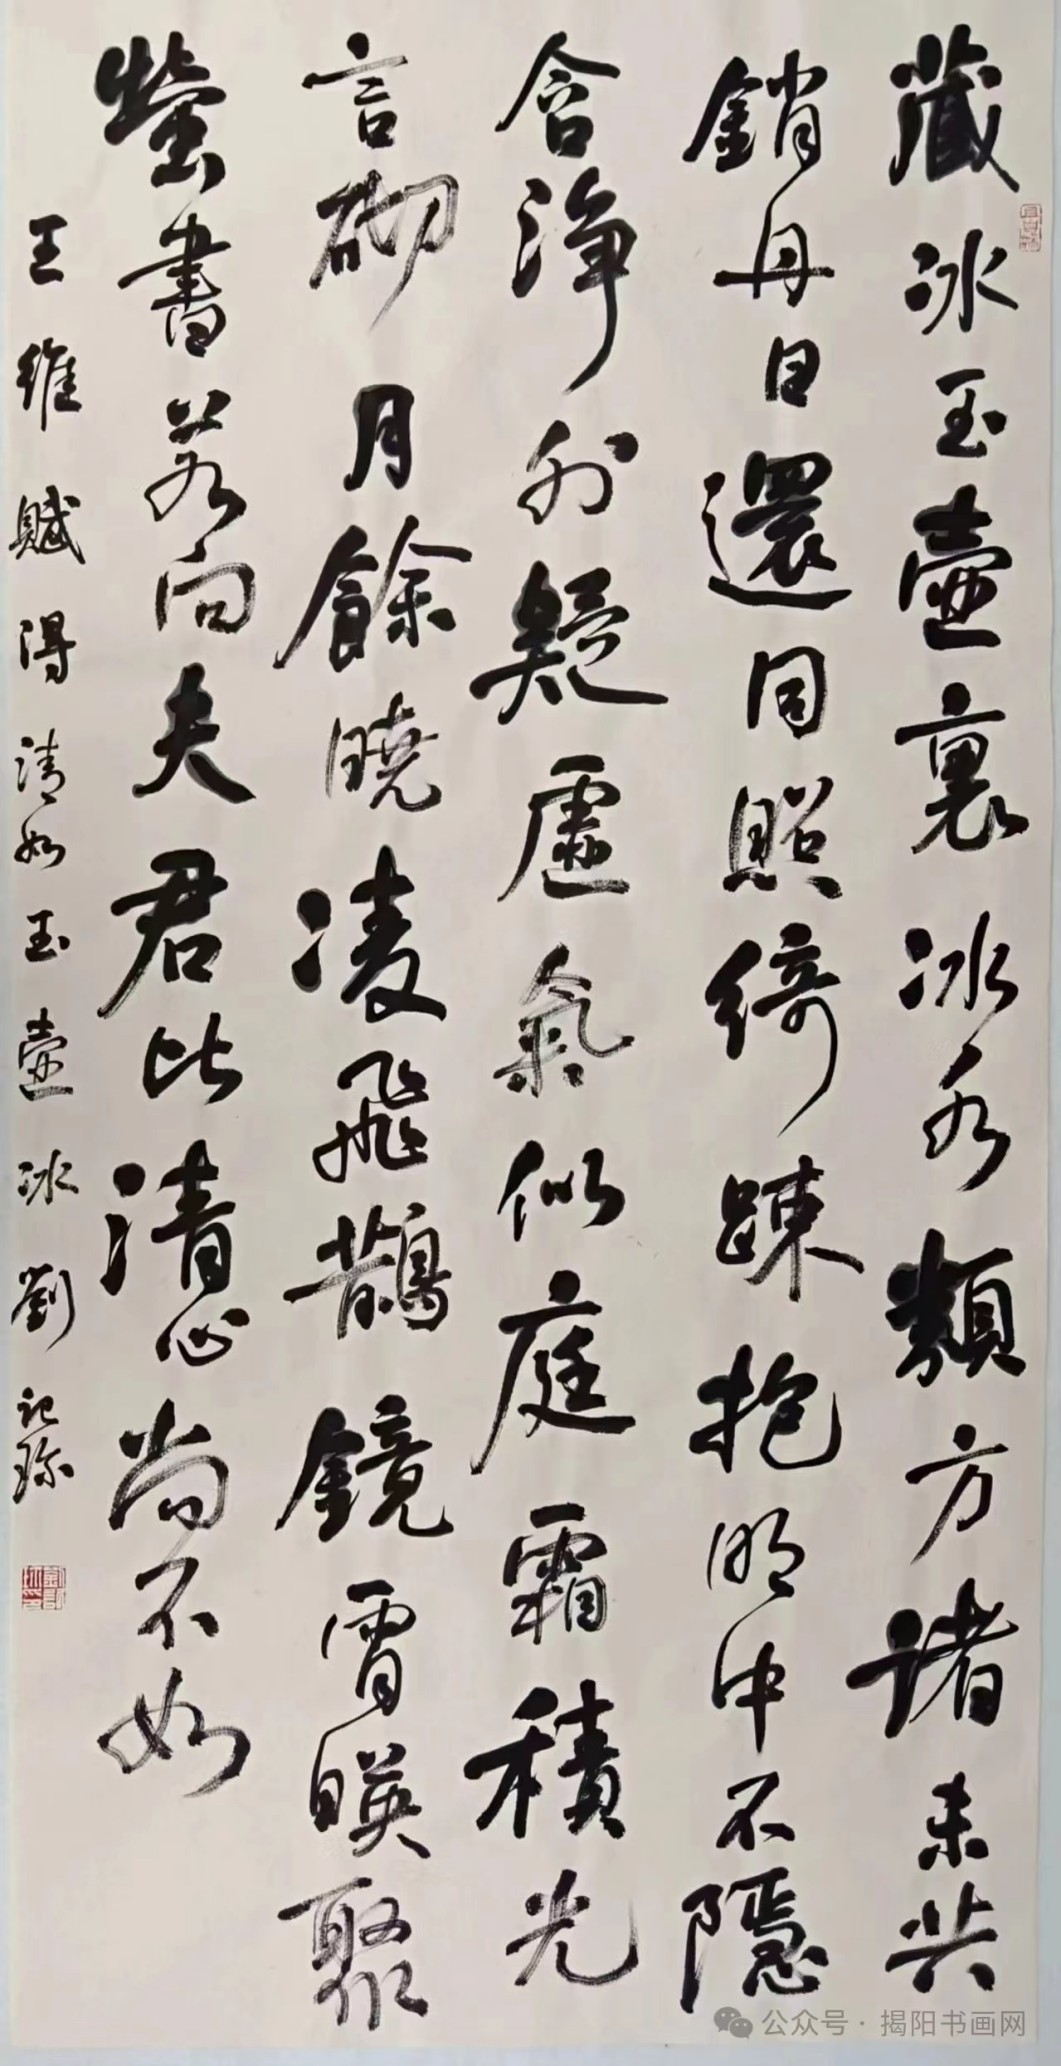 藏冰玉壺裏冰水類方諸未共
銷丹日還同照綺疎抱明中不隱
含淨外疑虛氣似庭霜積光
言砌月餘曉凌飛鵲鏡宵暎聚
螢書若向夫君比清心尚不如
王維賦得清如玉壺冰劉
公众号·揭阳书画网